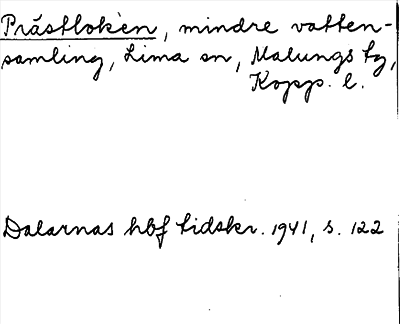 Prästlokèn, mindre vatten-
samling, Lima sn, Malungs tg,
Kopp. l.
Dalarnas hbf tidskr. 1941, s. 122